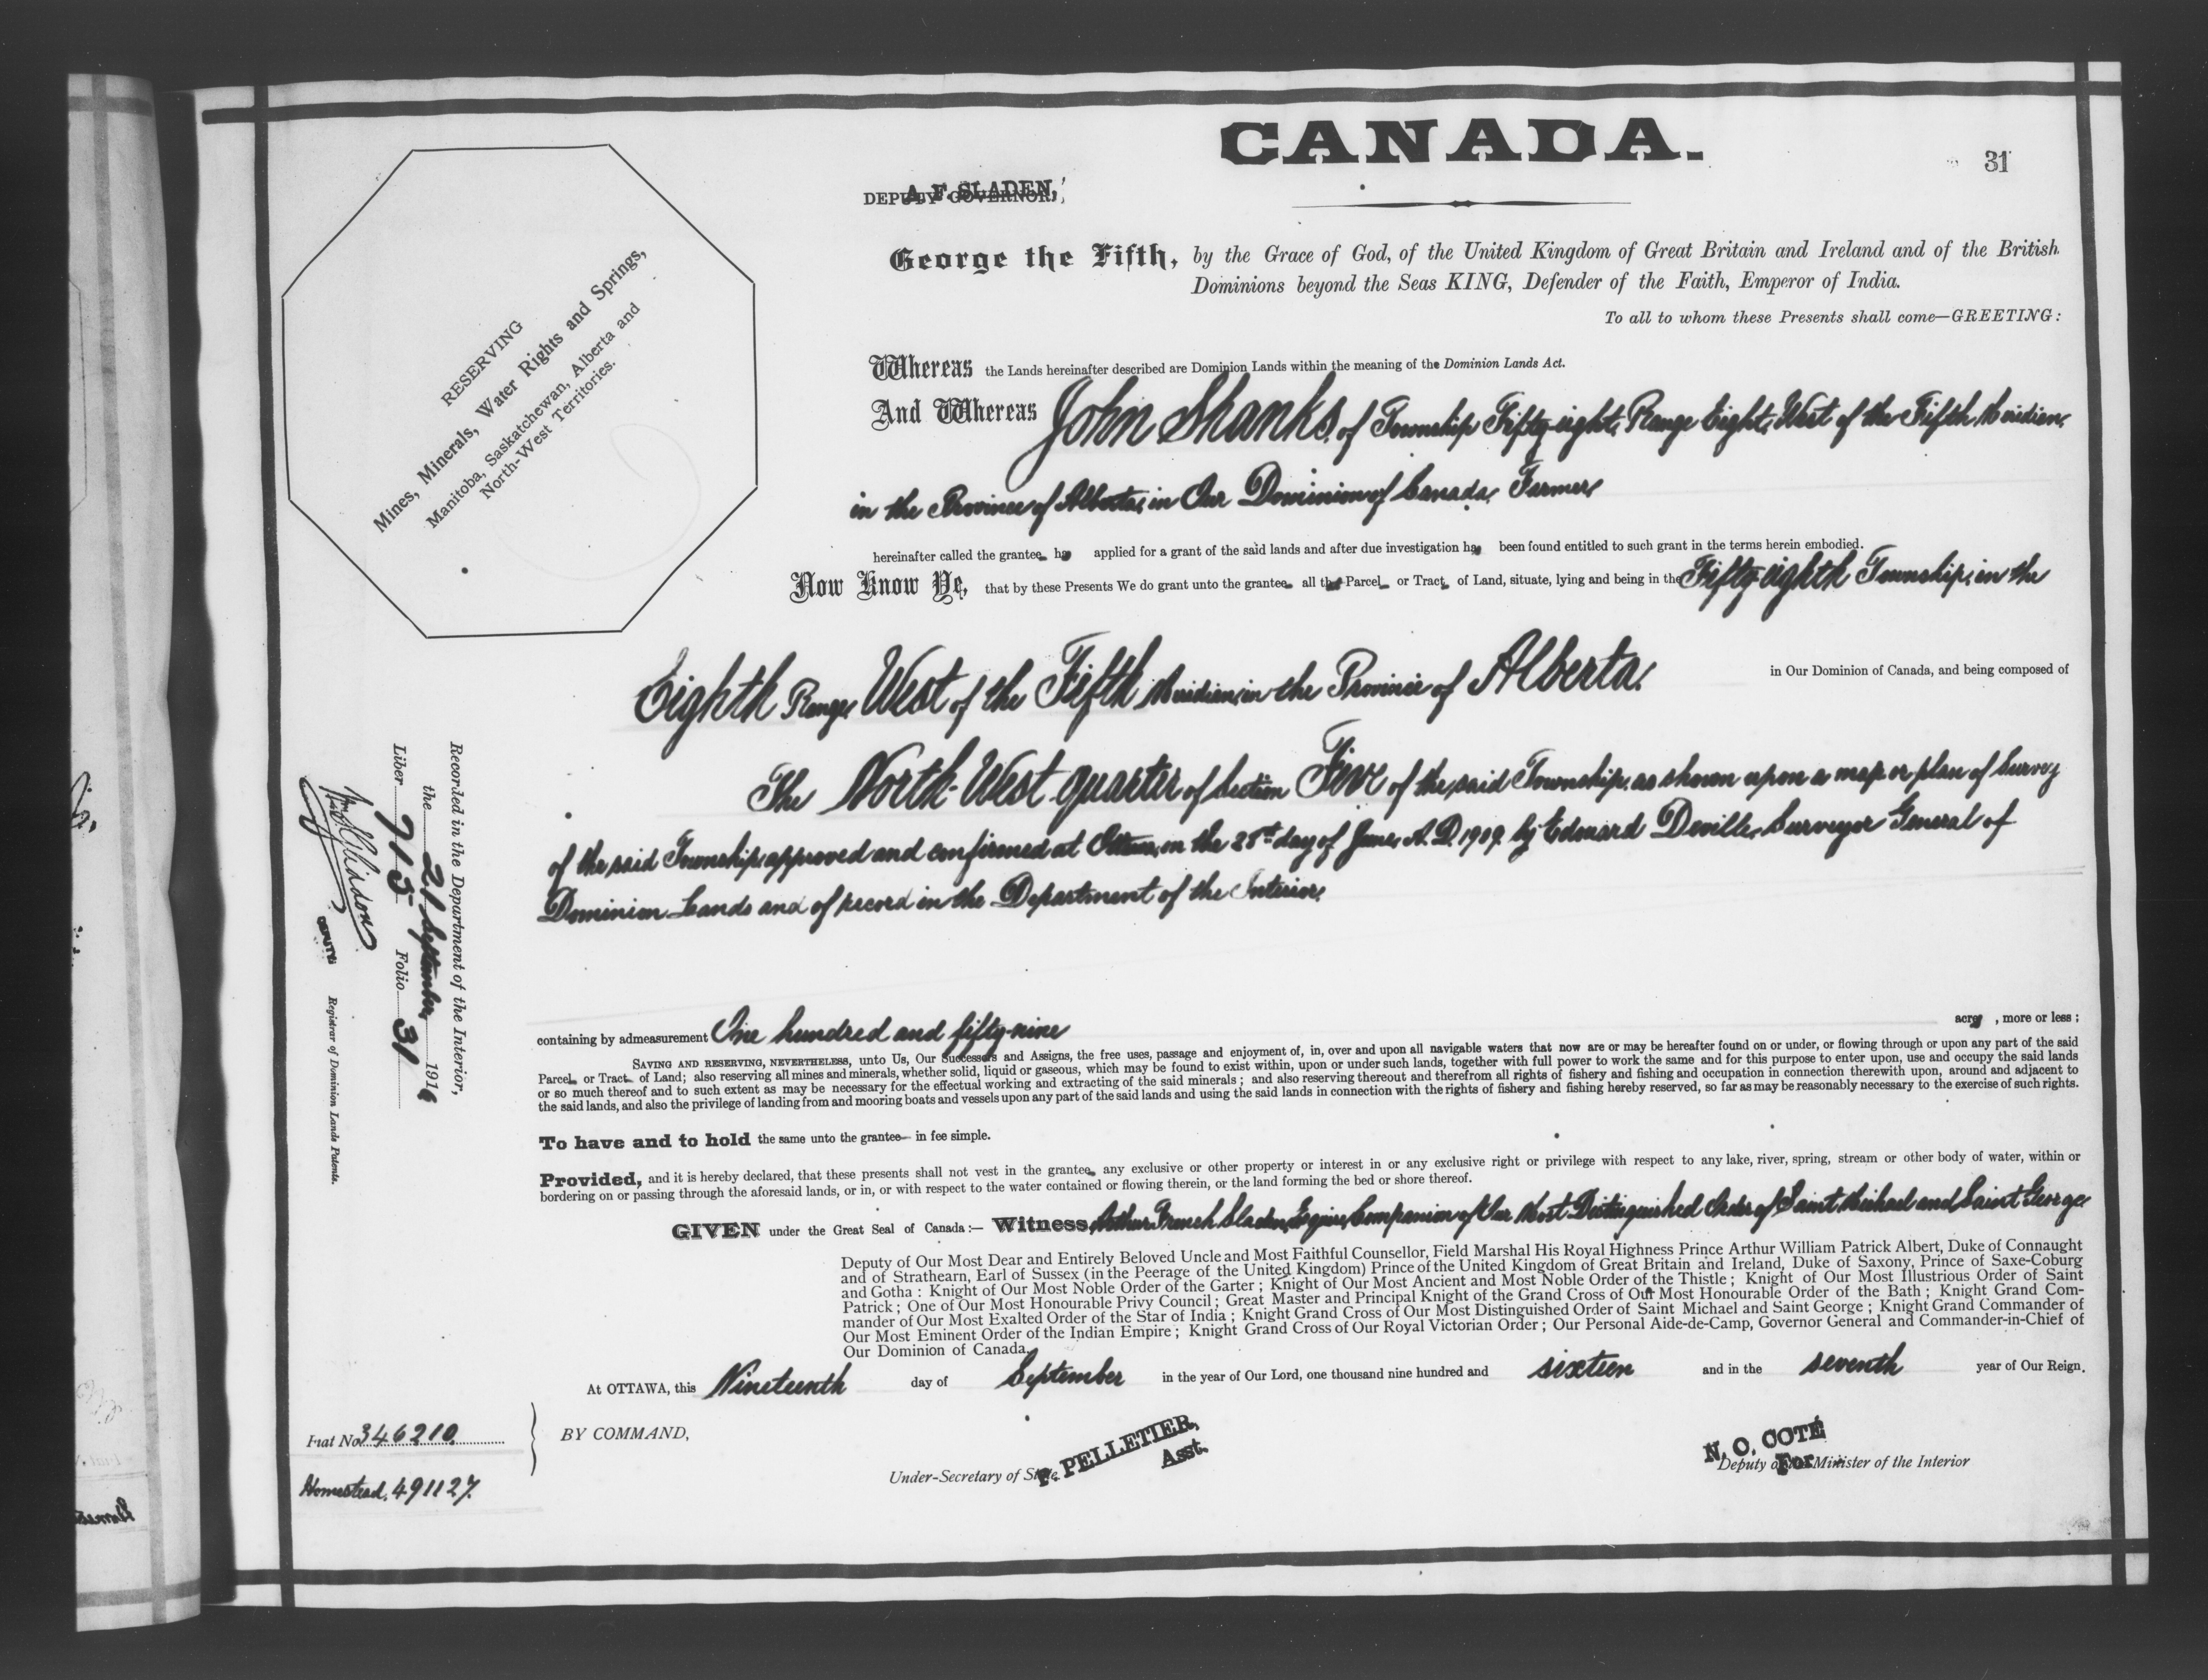 CANADA.
31
A. F. SLADEN,
DEPUTY GOVERNOR.
RESERVING
Mines, Minerals, Water Rights and Springs,
Manitoba, Saskatchewan, Alberta and
North-West Territories.
George the Fifth, by the Grace of God, of the United Kingdom of Great Britain and Ireland and of the British
Dominions beyond the Seas KING, Defender of the Faith, Emperor of India.
To all to whom these Presents shall come—GREETING:
Whereas the Lands hereinafter described are Dominion Lands within the meaning of the Dominion Lands Act.
And Whereas John Shanks, of Township Fifty-eight, Range Eight, West of the Fifth Meridian,
in the Province of Alberta, in Our Dominion of Canada, Farmer,
hereinafter called the grantee has applied for a grant of the said lands and after due investigation has been found entitled to such grant in the terms herein embodied.
Now Know Ye, that by these Presents We do grant unto the grantee all that Parcel or Tract of Land, situate, lying and being in the Fifty-eighth Township, in the
Eighth Range, West of the Fifth Meridian, in the Province of Alberta, in Our Dominion of Canada, and being composed of
The North-West quarter of Section Five of the said Township, as shown upon a map or plan of Survey
of the said Township, approved and confirmed at Ottawa, on the 28th day of June, A. D. 1909, by Edouard Deville, Surveyor General of
Dominion Lands and of record in the Department of the Interior,
containing by admeasurement One hundred and fifty-nine acres, more or less;
SAVING AND RESERVING, NEVERTHELESS, unto Us, Our Successors and Assigns, the free uses, passage and enjoyment of, in, over and upon all navigable waters that now are or may be hereafter found on or under, or flowing through or upon any part of the said
Parcel or Tract of Land; also reserving all mines and minerals, whether solid, liquid or gaseous, which may be found to exist within, upon or under such lands, together with full power to work the same and for this purpose to enter upon, use and occupy the said lands
or so much thereof and to such extent as may be necessary for the effectual working and extracting of the said minerals; and also reserving thereout and therefrom all rights of fishery and fishing and occupation in connection therewith upon, around and adjacent to
the said lands, and also the privilege of landing from and mooring boats and vessels upon any part of the said lands and using the said lands in connection with the rights of fishery and fishing hereby reserved, so far as may be reasonably necessary to the exercise of such rights.
To have and to hold the same unto the grantee in fee simple.
Provided, and it is hereby declared, that these presents shall not vest in the grantee any exclusive or other property or interest in or any exclusive right or privilege with respect to any lake, river, spring, stream or other body of water, within or
bordering on or passing through the aforesaid lands, or in, or with respect to the water contained or flowing therein, or the land forming the bed or shore thereof.
GIVEN under the Great Seal of Canada:— Witness, Arthur French Sladen, Esquire, Companion of Our Most Distinguished Order of Saint Michael and Saint George
Deputy of Our Most Dear and Entirely Beloved Uncle and Most Faithful Counsellor, Field Marshal His Royal Highness Prince Arthur William Patrick Albert, Duke of Connaught
and of Strathearn, Earl of Sussex (in the Peerage of the United Kingdom) Prince of the United Kingdom of Great Britain and Ireland, Duke of Saxony, Prince of Saxe-Coburg
and Gotha: Knight of Our Most Noble Order of the Garter; Knight of Our Most Ancient and Most Noble Order of the Thistle; Knight of Our Most Illustrious Order of Saint
Patrick; One of Our Most Honourable Privy Council; Great Master and Principal Knight of the Grand Cross of Our Most Honourable Order of the Bath; Knight Grand Com-
mander of Our Most Exalted Order of the Star of India; Knight Grand Cross of Our Most Distinguished Order of Saint Michael and Saint George; Knight Grand Commander of
Our Most Eminent Order of the Indian Empire; Knight Grand Cross of Our Royal Victorian Order; Our Personal Aide-de-Camp, Governor General and Commander-in-Chief of
Our Dominion of Canada,
At OTTAWA, this Nineteenth day of September in the year of Our Lord, one thousand nine hundred and sixteen and in the seventh year of Our Reign.
BY COMMAND,
P. PELLETIER,
Asst.
Under-Secretary of State
N. O. COTÉ
For
Deputy of the Minister of the Interior
Fiat No 346210
Homestead, 491127.
Recorded in the Department of the Interior,
the 21 September 1916
Liber 715 Folio 31
DEPUTY
Registrar of Dominion Lands Patents.